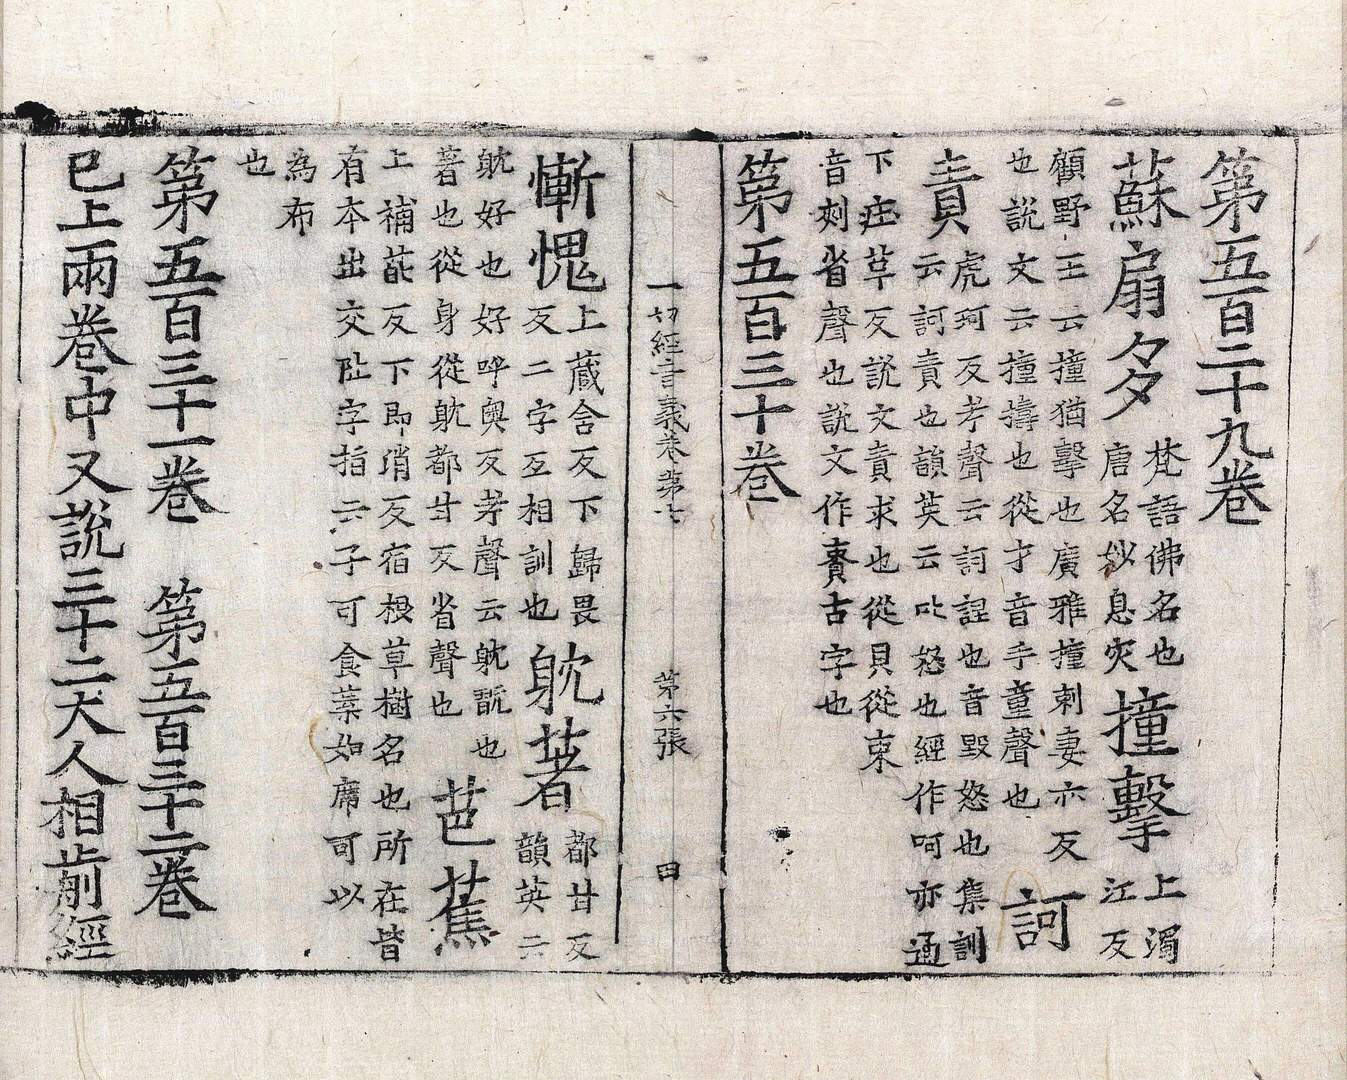 第五百二十九卷
蘇扇多
梵語佛名也
唐名妙息灾
撞擊
上濁
江反
顧野王云撞猶擊也廣雅撞刺妻亦反
也說文云撞擣也從才音手童聲也
訶
責
虎珂反考聲云訶詆也音毀怒也集訓
云訶責也韻英云叱怒也經作呵亦通
下庄革反說文責求也從貝從朿
音刺省聲也說文作賷古字也
第五百三十卷
一切經音義卷第七 第六張 田
慚愧
上藏含反下歸畏
反二字互相訓也
躭著
都甘反
韻英云
躭好也好呼奧反考聲云躭翫也
著也從身從躭都甘反省聲也
芭蕉
上補葩反下即消反宿根草樹名也所在皆
有本出交阯字指云子可食葉如席可以
為布
也
第五百三十一卷 第五百三十二卷
已上兩卷中又說三十二大人相前經